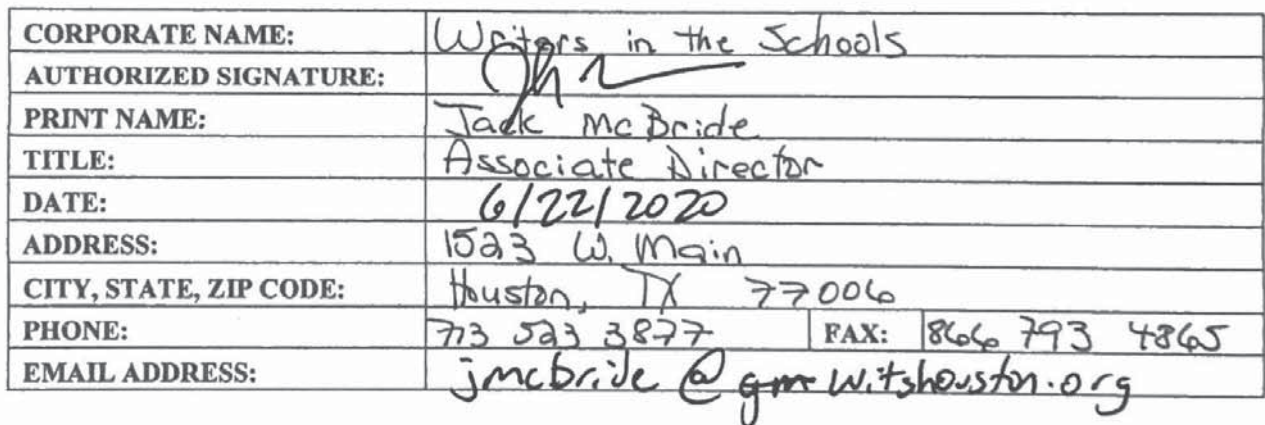 CORPORATE NAME: Writers in the Schools
AUTHORIZED SIGNATURE:
PRINT NAME: Jack McBride
TITLE: Associate Director
DATE: 6/22/2020
ADDRESS: 1523 W. Main
CITY, STATE, ZIP CODE: Houston, TX 77006
PHONE: 713 523 3877 FAX: 866 793 4865
EMAIL ADDRESS: jmcbride @ gm witshouston.org